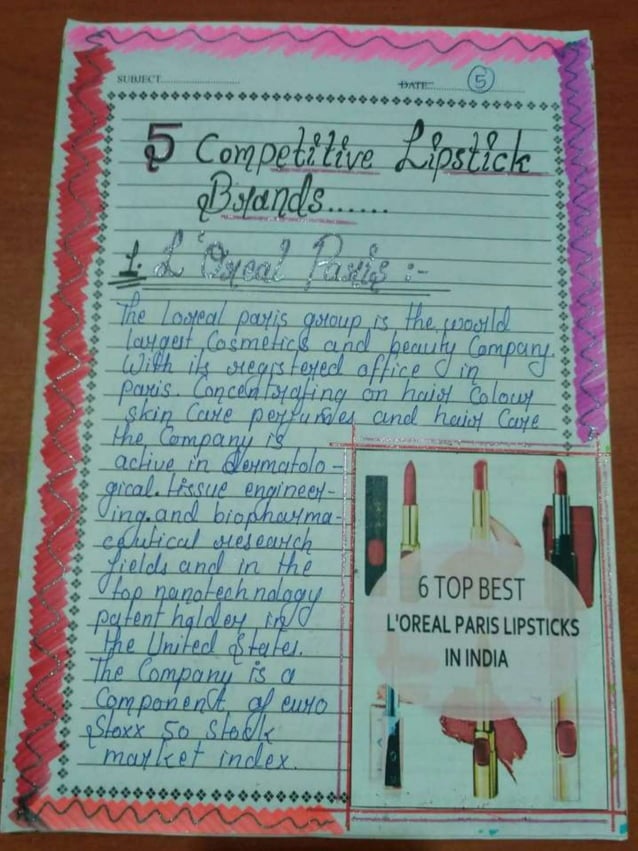 SUBJECT
DATE
5
5 Competitive Lipstick
Brands......
1. L'Oreal Paris :-
The Loreal paris group is the world
largest Cosmetics and beauty Company.
With its registered office in
paris. Concentrating on hair Colour
skin Care perfumes and hair Care
the Company is
active in dermatolo-
gical. tissue engineer-
ing. and biopharma-
ceutical research
fields and in the
top nanotechnology
patent holder in
the United States.
The Company is a
Component of euro
Stoxx 50 stock
market index.
6 TOP BEST
L'OREAL PARIS LIPSTICKS
IN INDIA